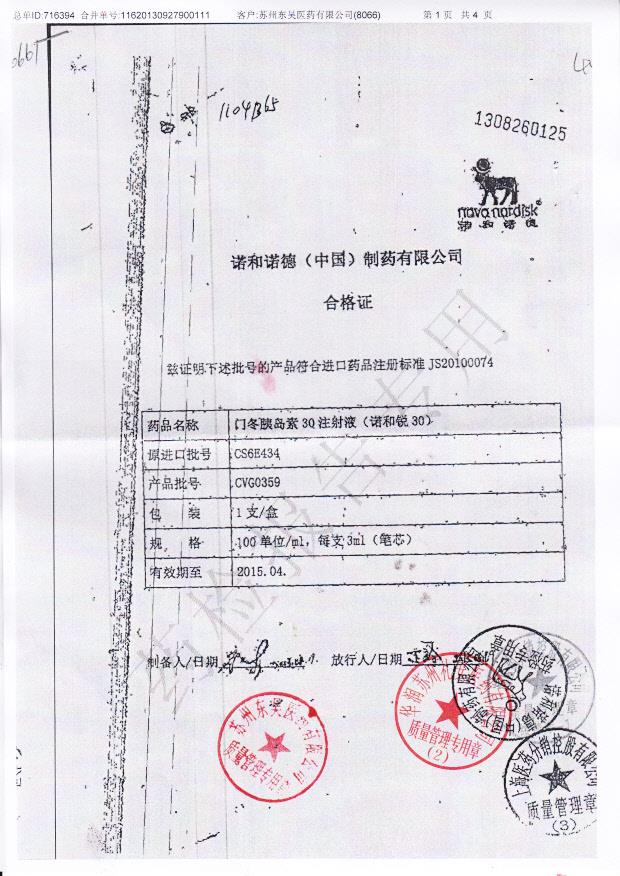 总单ID:716394 合并单号:11620130927900111 客户:苏州东吴医药有限公司(8066) 第 1 页 共 4 页
1104B65
1308260125
novo nordisk®
诺和诺德
诺和诺德（中国）制药有限公司
合格证
兹证明下述批号的产品符合进口药品注册标准 JS20100074
药品名称 门冬胰岛素 30 注射液（诺和锐 30）
原进口批号 CS6E434
产品批号 CVG0359
包 装 1 支/盒
规 格 100 单位/ml，每支 3ml（笔芯）
有效期至 2015.04.
制备人/日期 放行人/日期
药检报告专用
苏州东吴医药有限公司
质量管理专用章
华润苏州礼安医药有限公司
质量管理专用章
(2)
诺和诺德（中国）制药有限公司
药检专用章
上海医药分销控股有限公司
质量管理章
(3)